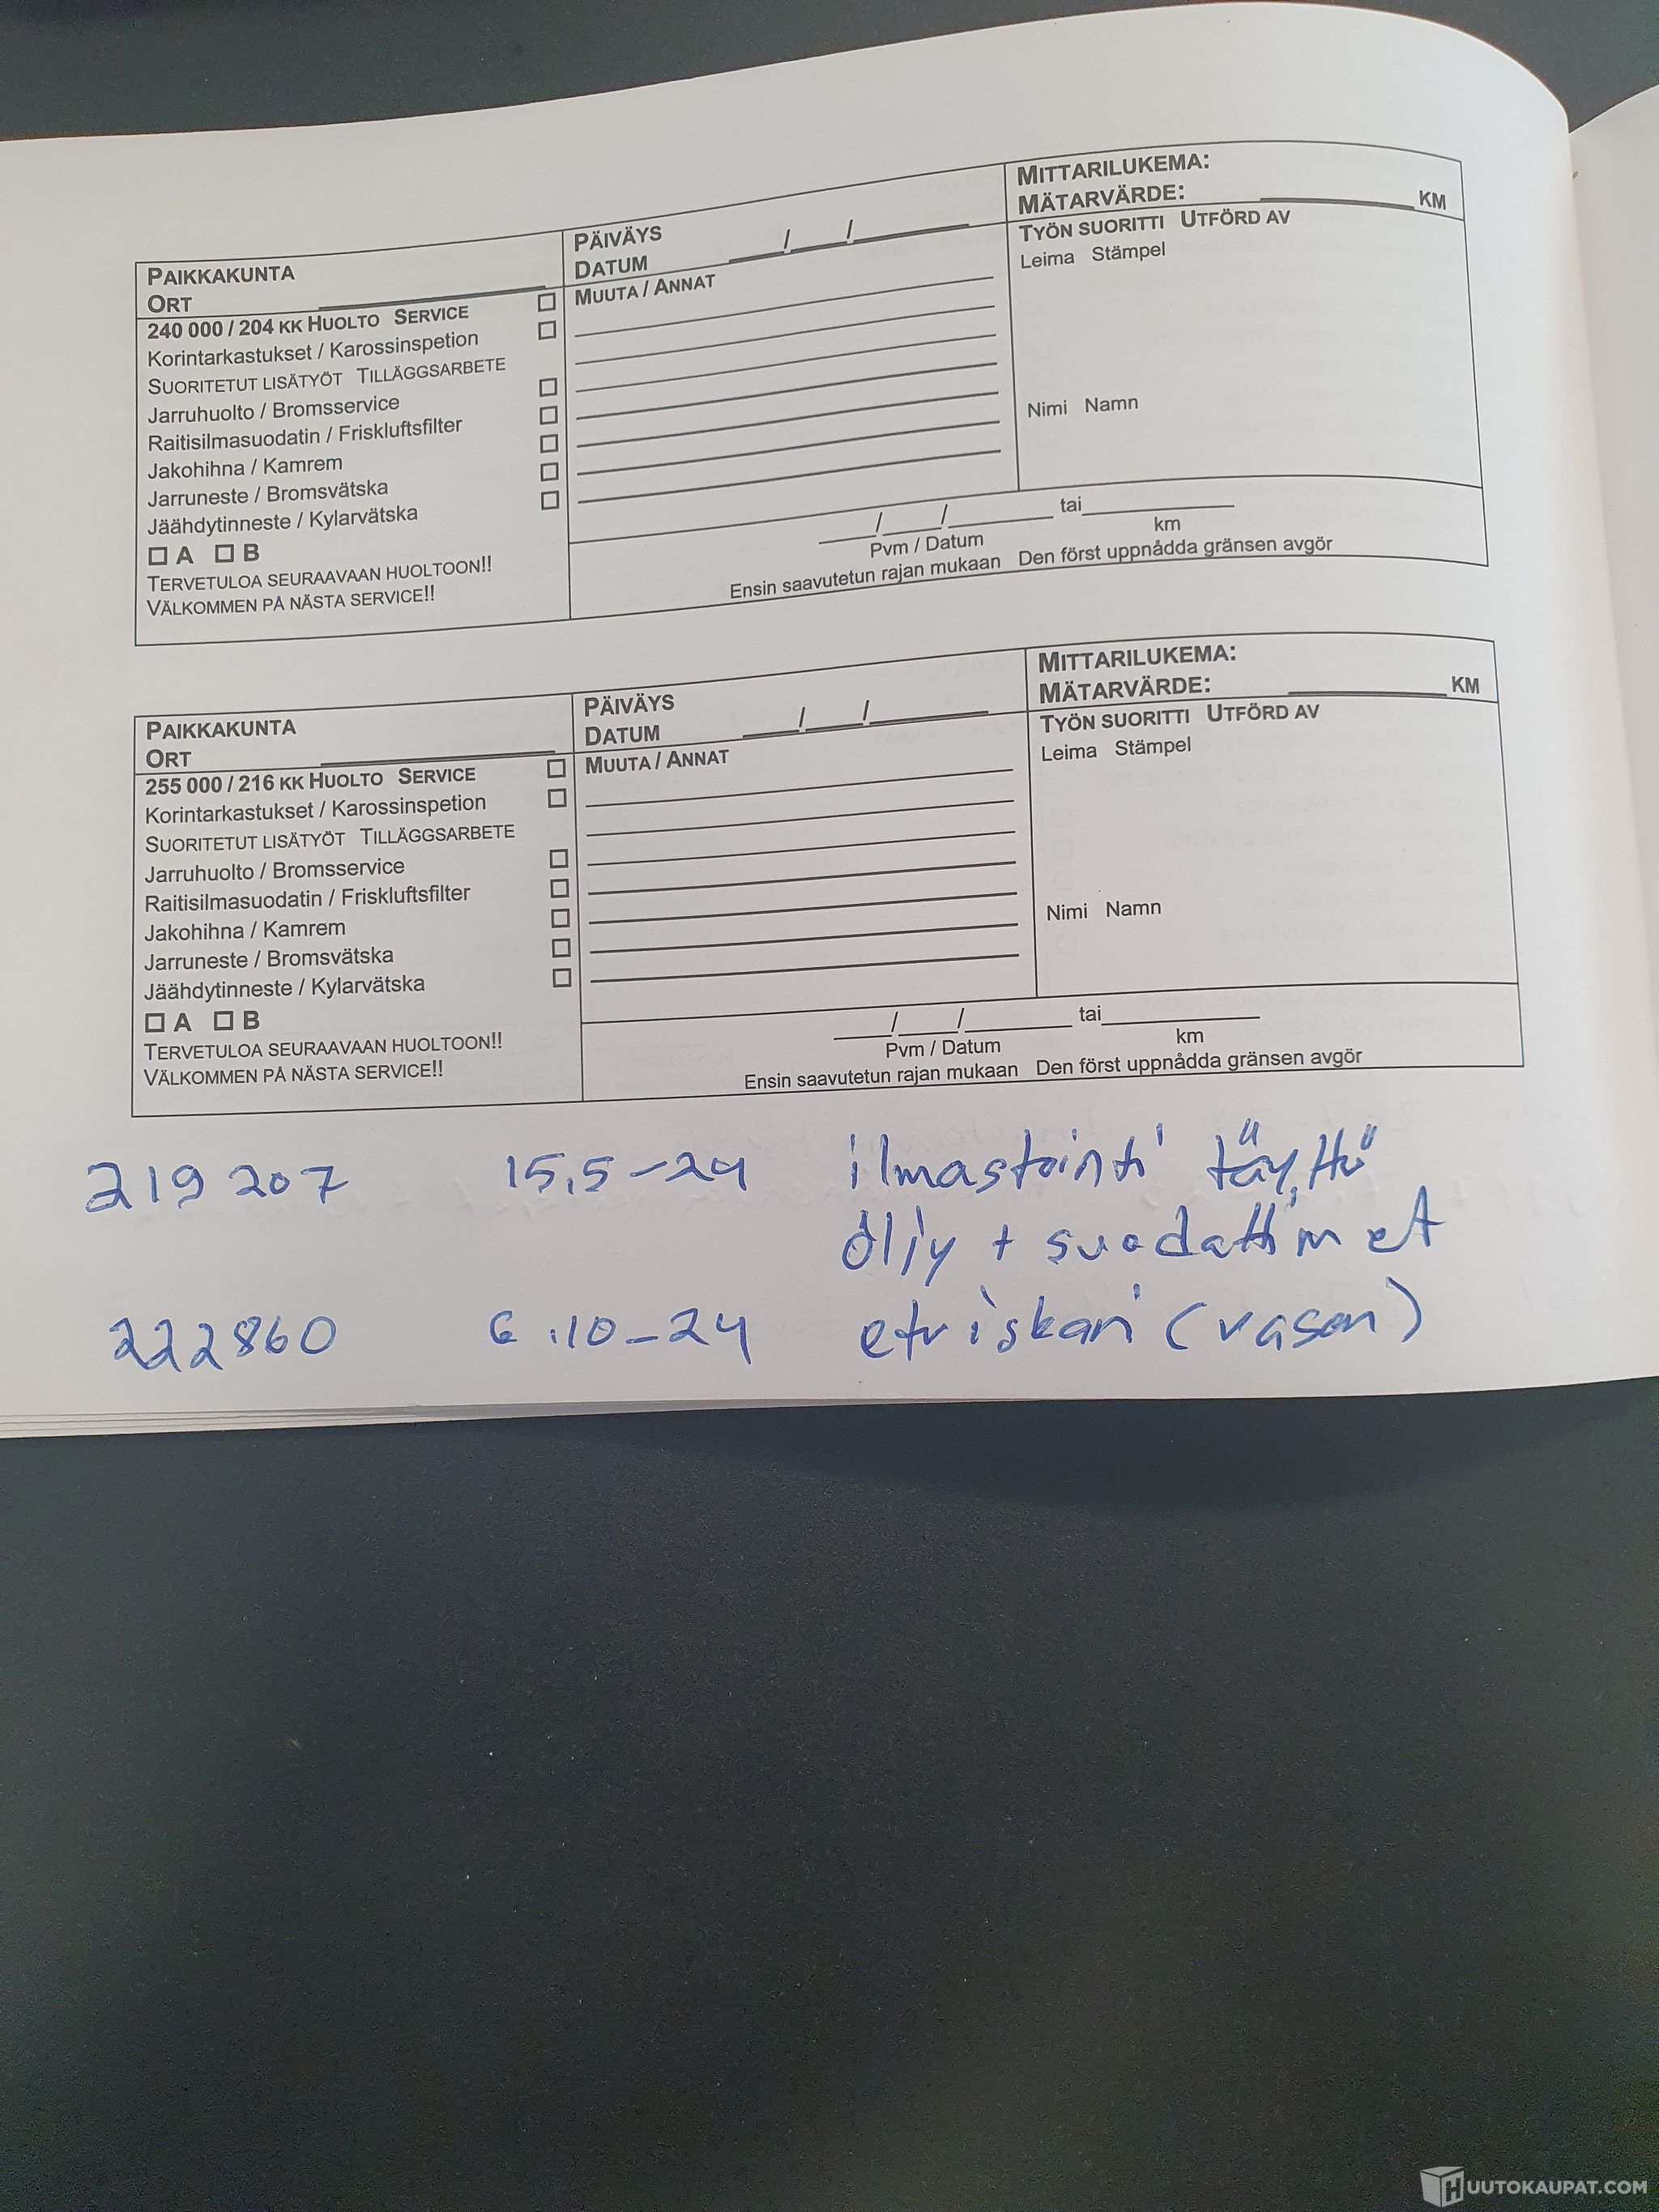 MITTARILUKEMA:
MÄTARVÄRDE: ________ KM
PÄIVÄYS
DATUM ___/___/_____
PAIKKAKUNTA
ORT ________
TYÖN SUORITTI UTFÖRD AV
Leima Stämpel
Nimi Namn
240 000 / 204 KK HUOLTO SERVICE ☐
Korintarkastukset / Karossinspetion ☐
SUORITETUT LISÄTYÖT TILLÄGGSARBETE
Jarruhuolto / Bromsservice ☐
Raitisilmasuodatin / Friskluftsfilter ☐
Jakohihna / Kamrem ☐
Jarruneste / Bromsvätska ☐
Jäähdytinneste / Kylarvätska ☐
☐ A ☐ B
TERVETULOA SEURAAVAAN HUOLTOON!!
VÄLKOMMEN PÅ NÄSTA SERVICE!!
MUUTA / ANNAT
___/___/_____ tai________
Pvm / Datum km
Ensin saavutetun rajan mukaan Den först uppnådda gränsen avgör
MITTARILUKEMA:
MÄTARVÄRDE: ________ KM
PÄIVÄYS
DATUM ___/___/_____
PAIKKAKUNTA
ORT ________
TYÖN SUORITTI UTFÖRD AV
Leima Stämpel
Nimi Namn
255 000 / 216 KK HUOLTO SERVICE ☐
Korintarkastukset / Karossinspetion ☐
SUORITETUT LISÄTYÖT TILLÄGGSARBETE
Jarruhuolto / Bromsservice ☐
Raitisilmasuodatin / Friskluftsfilter ☐
Jakohihna / Kamrem ☐
Jarruneste / Bromsvätska ☐
Jäähdytinneste / Kylarvätska ☐
☐ A ☐ B
TERVETULOA SEURAAVAAN HUOLTOON!!
VÄLKOMMEN PÅ NÄSTA SERVICE!!
MUUTA / ANNAT
___/___/_____ tai________
Pvm / Datum km
Ensin saavutetun rajan mukaan Den först uppnådda gränsen avgör
219 207 15.5-24 ilmastointi täyttö
öljy + suodattimet
222860 6.10-24 etuiskari (vasen)
HUUTOKAUPAT.COM